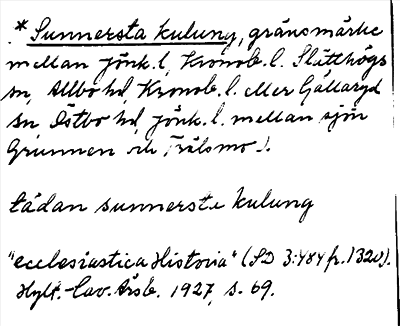 * Sunnersta kulung, gränsmärke
mellan Jönk. l, Kronob. l. Slätthögs
sn, Allbo hd, Kronob. l. eller Gällaryd
sn Östbo hd, Jönk. l. mellan sjön
Grunnen och Trälsmo).
tädan sunnerste kulung
"ecclesiastica Historia" (SD 3:484 fr. 1320).
Hylt.-Cav. Årsb. 1927, s. 69.